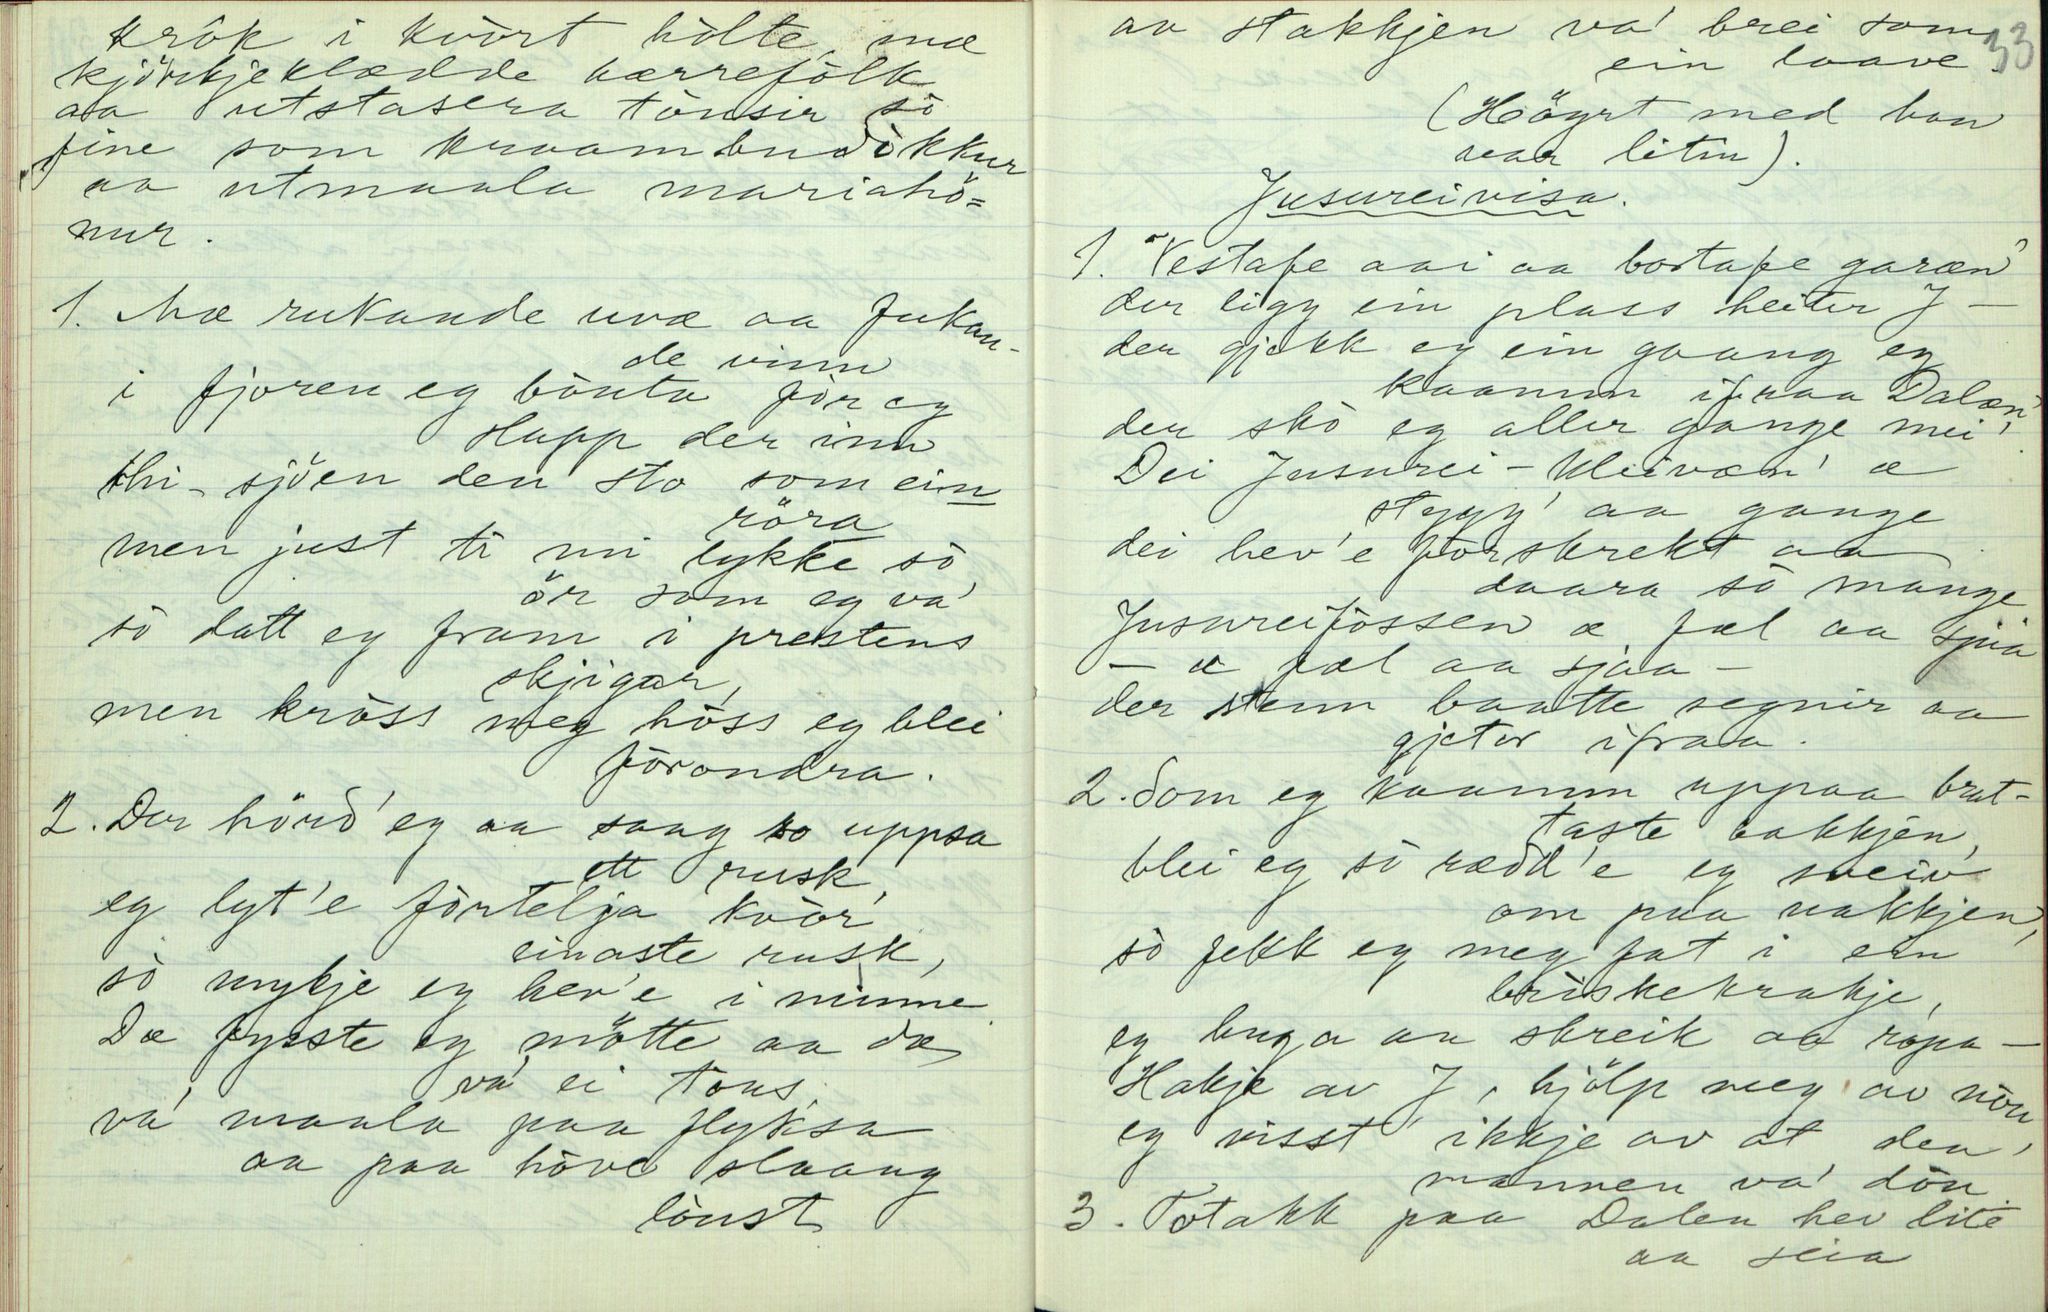 krôk i kvòrt hòlte, mæ
kjörkjeklædde herrefòlk
aa utstasera tònsir sò
fine som kraambudòkkur
aa utmaala mariahö=
nur.
1. Mæ rukande uvæ aa fukan-
de vinn
i fjoren eg bònta fòr eg
slapp der inn
thi sjöen den sto som ein
röra
men just ti mi lykke sò
ör som eg va'
sò datt eg fram i prestens
skjigar,
men kròss meg hòss eg blei
fòrondra.
2. Der hörd' eg aa saag so uppsa
ett rusk,
eg lyt'e fòrtelja kvòr
einaste rusk,
sò mykje eg hev'e i minne
Dæ fysste eg mötte aa dæ
va' ei tous,
va' maala paa flyksa
aa paa hòve slaang
lòust
33
av stakkjen va' brei som
ein laave.
(Högrt med han
var litin).
Jusureivisa.
1. Vestafe aai aa bortafe garæn'
der ligg ein plass heiter J –
der gjekk eg ein gaang eg
kaamm ifraa Dalæn'
der skò eg aller gange mei'!
Dei Jusurei-kleivæn' æ
stygg' aa gange
dei hev'e fòrskrekt aa
daara sò mange
Jusureifòssen æ fæl aa sjaa
– æ fæl aa sjaa –
der stenn baatte segnir aa
gjetor ifraa.
2. Som eg kaamm uppaa brat-
taste bakkjen,
blei eg sò rædd'e eg sveiv
om paa nakkjen,
sò fekk eg meg fat i ein
briskekrakje,
eg buga an skreik aa ropa –
Hakje av J, hjölp meg av nòu,
eg visst' ikkje av at den
mannen va' döu.
3. Totakk paa Dalen hev lite
aa seia